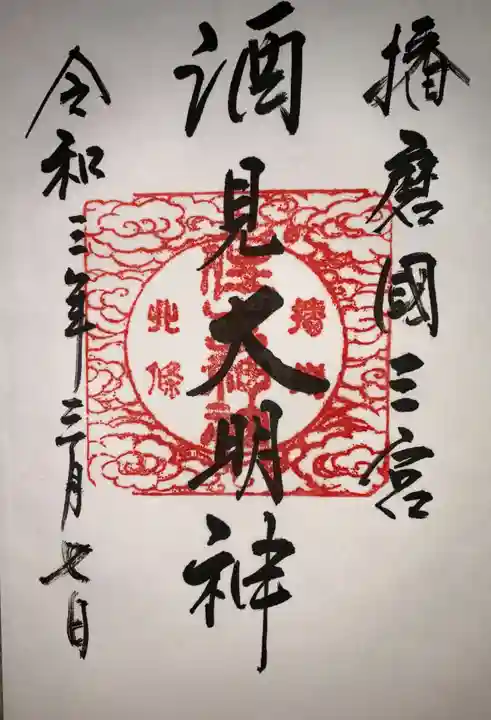 播磨國三宮
酒見大明神
令和三年三月七日
播磨
北條